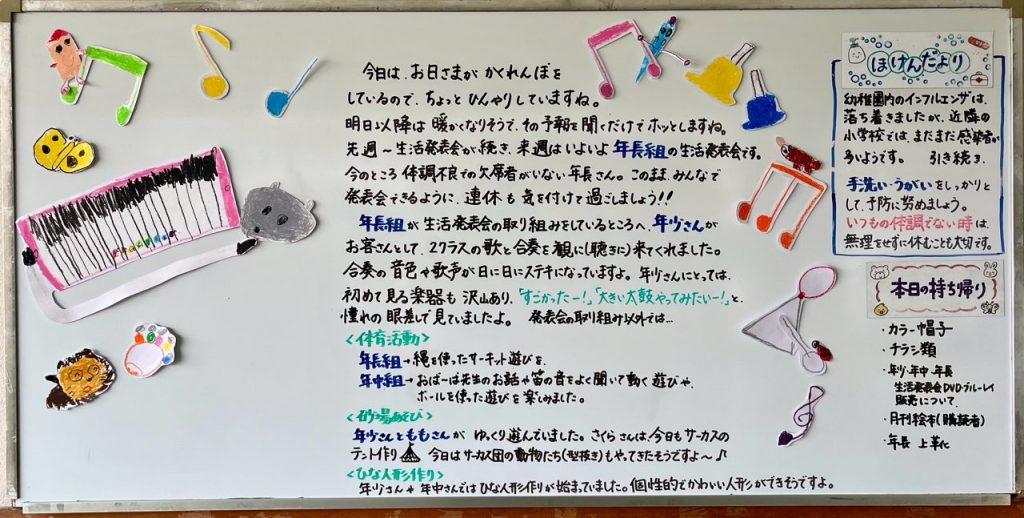 今日は、お日さまが かくれんぼを
しているので、ちょっと ひんやりしていますね。
明日以降は 暖かくなりそうで、その予報を聞くだけでホッとしますね。
先週～生活発表会が続き、来週はいよいよ 年長組の生活発表会です。
今のところ 体調不良での欠席者がいない 年長さん。このまま、みんなで
発表会できるように、連休も 気を付けて過ごしましょう!!
年長組が 生活発表会の取り組みをしているところへ、年少さんが
お客さんとして、2クラスの歌と合奏を観に(聴きに)来てくれました。
合奏の音色や歌声が日に日にステキになっていますよ。年少さんにとっては、
初めて見る楽器も 沢山あり、「すごかったー!」「大きい太鼓やってみたいー!」と、
憧れの眼差しで見ていましたよ。 発表会の取り組み以外では…
<体育活動>
年長組→縄を使ったサーキット遊びを、
年中組→おばーば先生のお話や笛の音をよく聞いて動く遊びや、
ボールを使った遊びを楽しみました。
<砂場あそび>
年少さんとももさんが ゆっくり遊んでいました。さくらさんは、今日もサーカスの
テント作り 今日はサーカス団の動物たち(型抜き)もやってきたそうですよ～♪
<ひな人形作り>
年少さん + 年中さんではひな人形作りが始まっていました。個性的でかわいい人形ができそうですよ。
ほけんだより
幼稚園内のインフルエンザは、
落ち着きましたが、近隣の
小学校では、まだまだ感染者が
多いようです。 引き続き、
手洗い・うがいをしっかりと
して、予防に努めましょう。
いつもの体調でない時は、
無理をせずに休むことも大切です。
本日の持ち帰り
・カラー帽子
・チラシ類
・年少・年中・年長
生活発表会DVD・ブルーレイ
販売について
・月刊絵本(購読者)
・年長 上靴